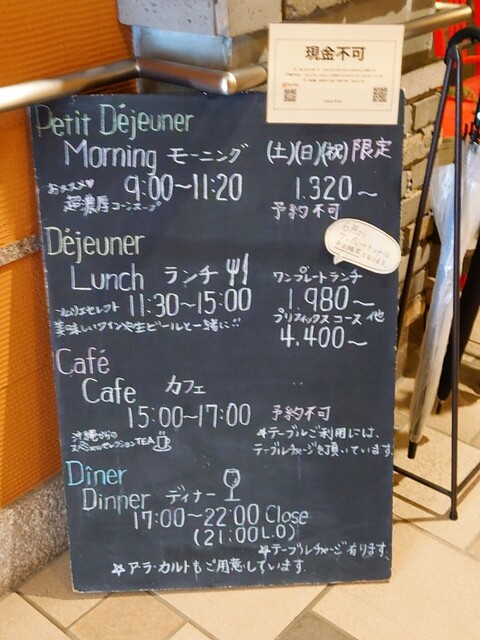 現金不可
Petit Déjeuner
Morning モーニング (土)(日)(祝)限定
おススメ♥ 9:00~11:20 1.320~
超濃厚コーンスープ 予約不可
Déjeuner
Lunch ランチ ワンプレートランチ
11:30~15:00 1.980~
美味しいワインや生ビールと一緒に!! プリフィックスコース 他
4.400~
Café
Cafe カフェ
15:00~17:00 予約不可
沖縄からの ☆テーブルご利用には、
スペシャルセレクションTEA テーブルチャージを頂いています。
Dîner
Dinner ディナー
17:00~22:00 Close
(21:00 L.O)
☆テーブルチャージ有ります。
☆アラ・カルトもご用意しています。